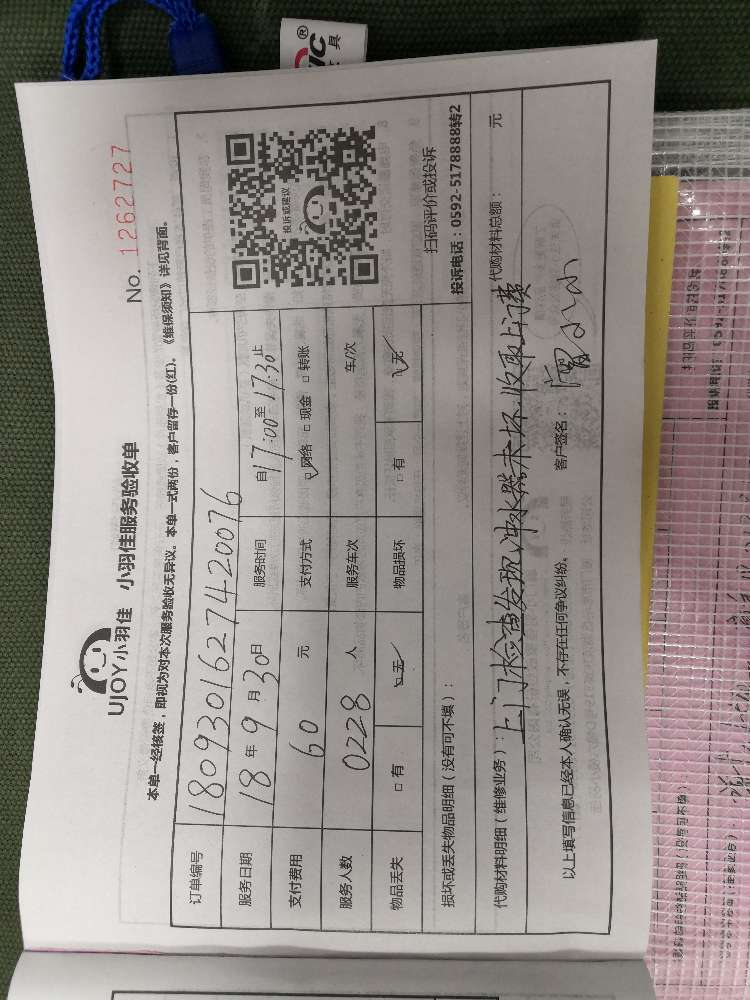 UJOY小羽佳 小羽佳服务验收单
No. 1262727
本单一经核签，即视为对本次服务验收无异议。本单一式两份，客户留存一份(红)。《维保须知》详见背面。
订单编号 1809301627420076
服务日期 18年9月30日 服务时间 自17:00至17:30止
支付费用 60 元 支付方式 ☑网络 □现金 □转账
服务人数 0228 人 服务车次 车/次
物品丢失 □有 ☑无 物品损坏 □有 ☑无
投诉或建议
扫码评价或投诉
投诉电话：0592-5178888转2
损坏或丢失物品明细（没有可不填）：
代购材料明细（维修业务）：上门检查发现冲水器未坏.收取上门费 代购材料总额： 元
以上填写信息已经本人确认无误，不存在任何争议纠纷。 客户签名：